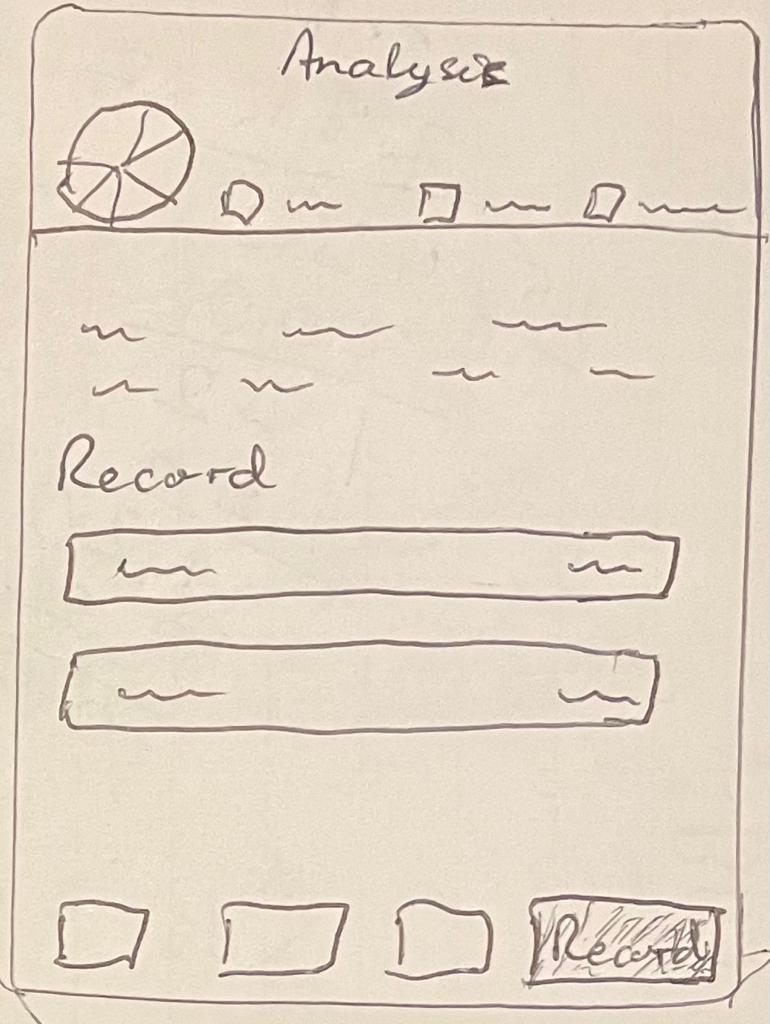 Analysis
Record
Record